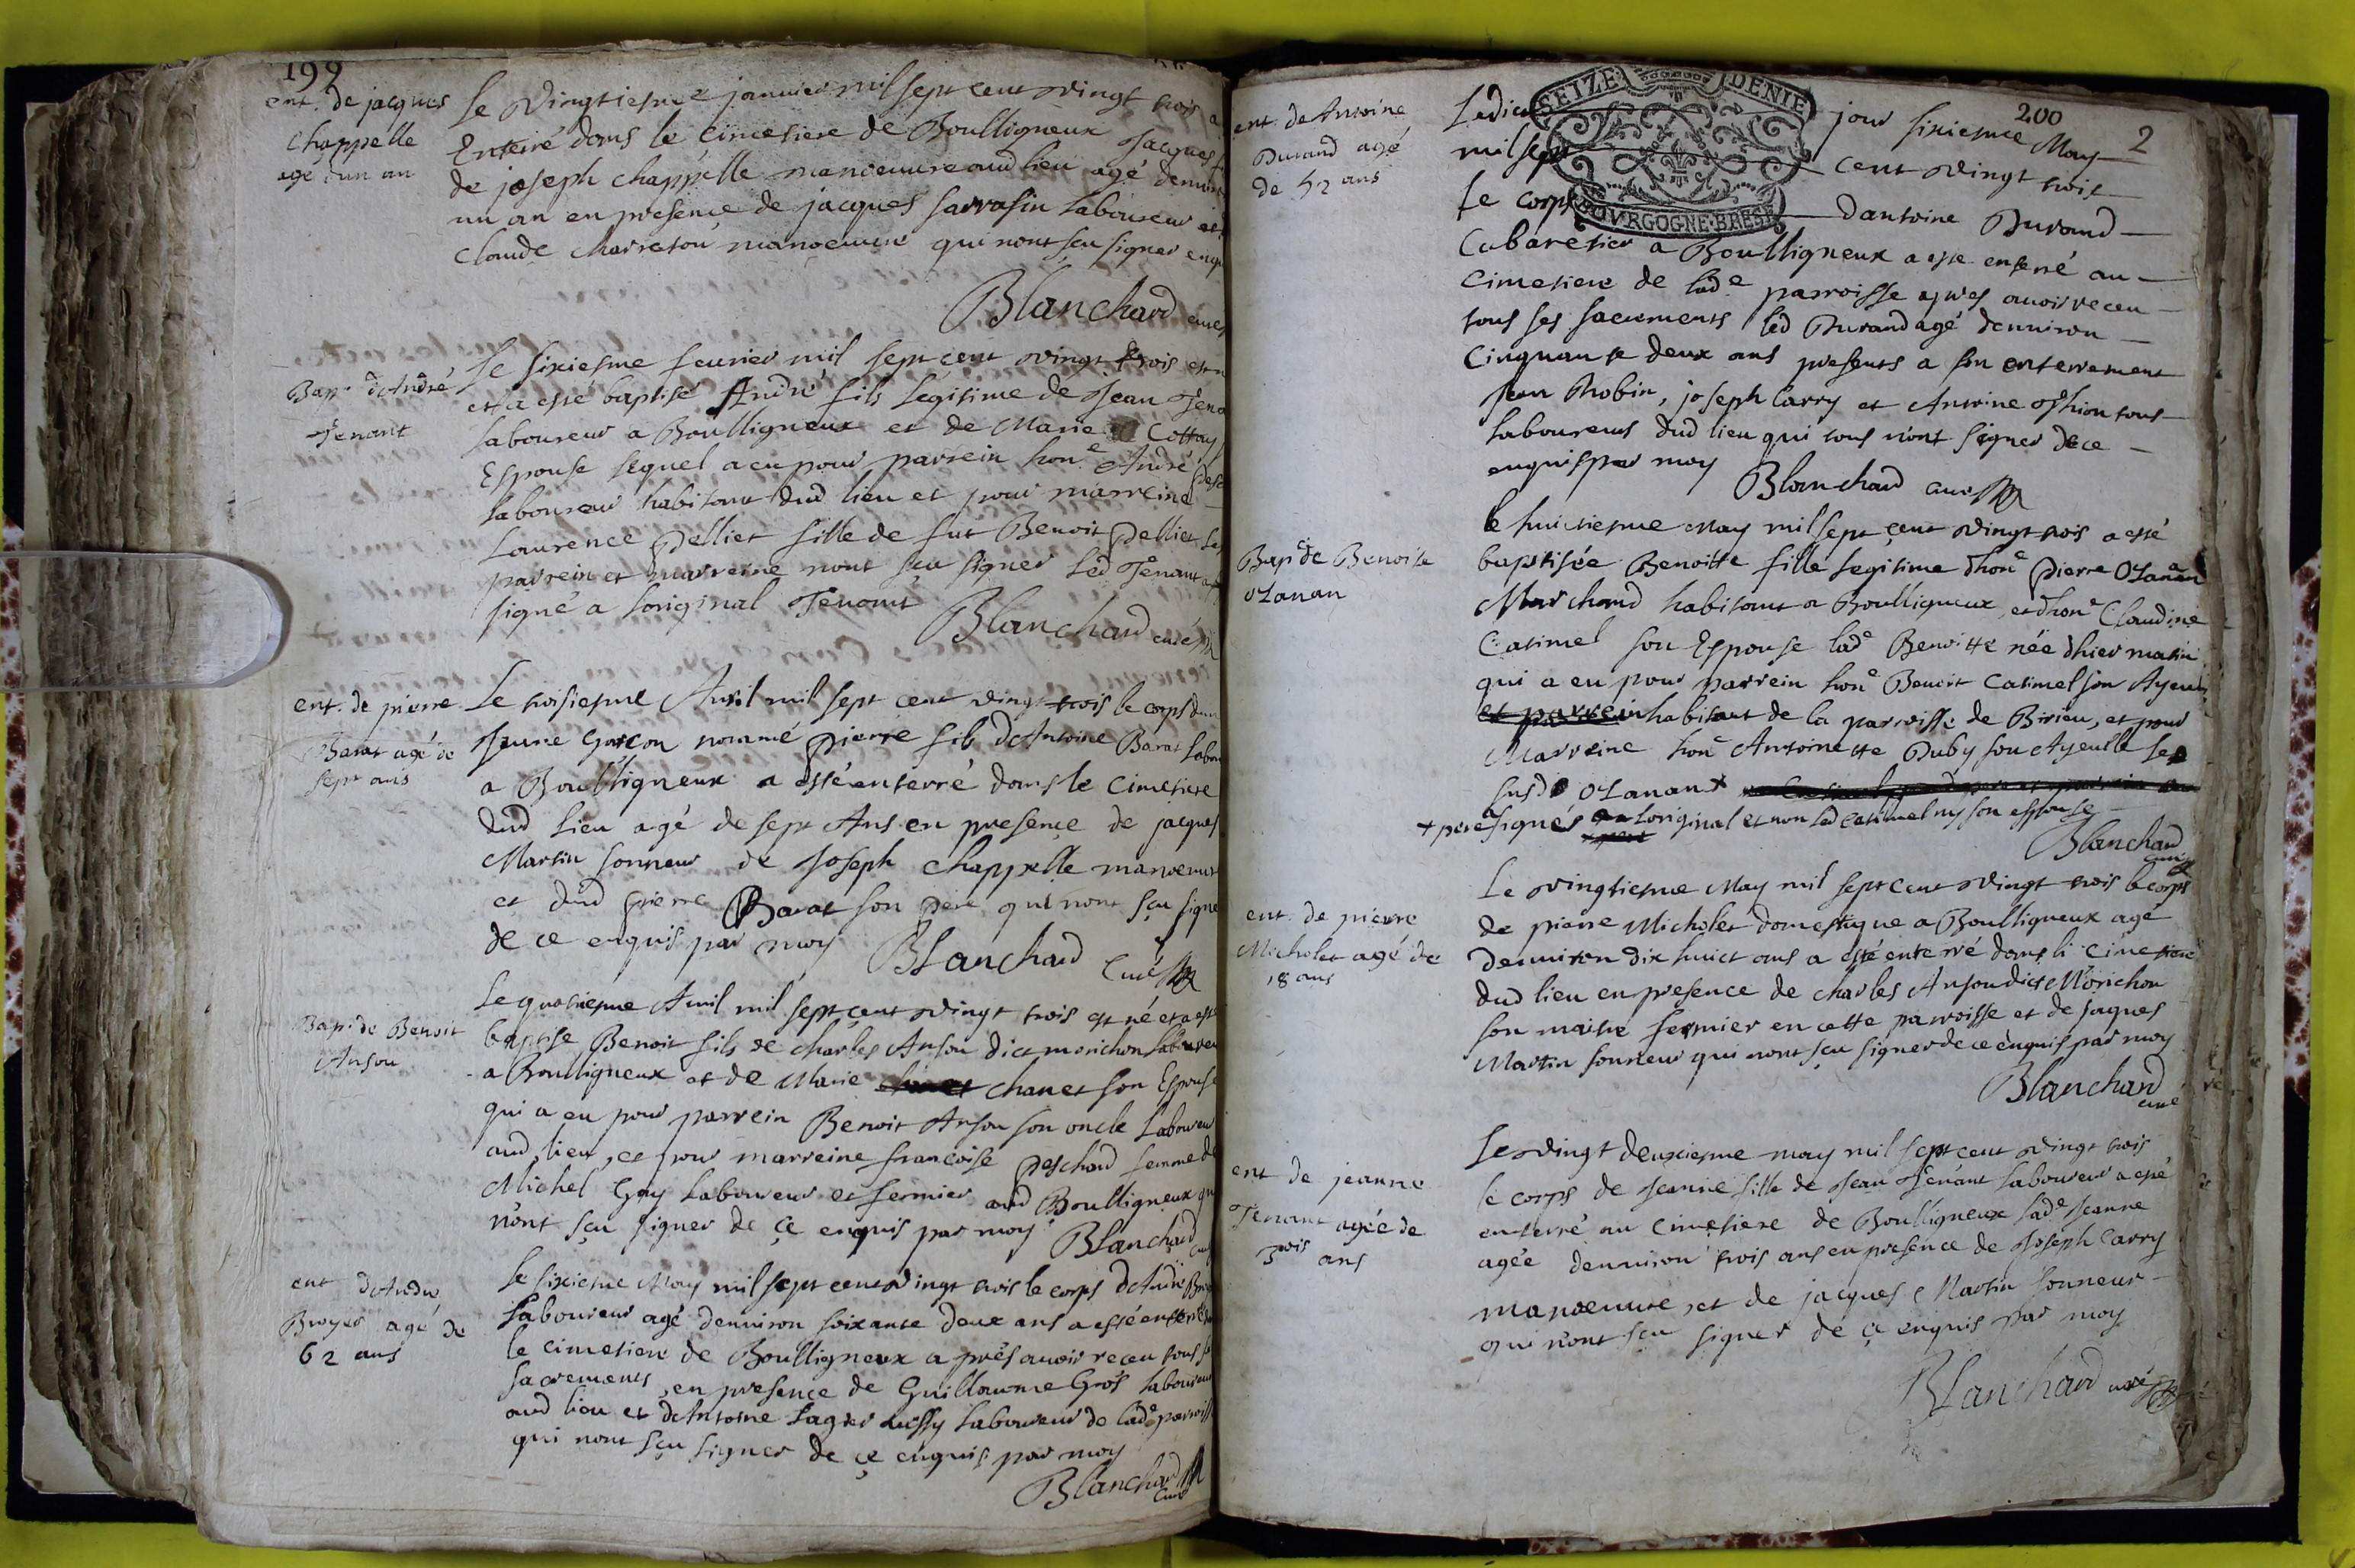 199
ent. de jacques
Chappelle
agé d'un an
Le vingtiesme janvier mil sept cent vingt trois a
Enterré dans le cimetiere de Boulligneux Jacques
de joseph chappelle manoeuvre aud lieu agé denviron
un an en presence de jacques sarrasin laboureur et
claude charreton manoeuvre qui nont sçu signer enq
Blanchard curé
Bap. d'André
Tenant
Le sixiesme fevrier mil sept cent vingt trois est
et a esté baptisé André fils legitime de Jean Tena
laboureur a Boulligneux et de Marie Cottay
Espouse lequel a eu pour parrein hon.e André
laboureur habitant dud lieu et pour marreine
Laurence Pelliet fille de fut Benoit Pelliet les
parrein et marreine nont sçu signer led Tenant a
signé a l'original Tenant
Blanchard curé
ent. de pierre
Barat agé de
sept ans
Le troisiesme Avril mil sept cent vingt trois le corps dun
Jeune Garcon nommé pierre fils d'Antoine Barat labou
a Boulligneux a esté enterré dans le cimetiere
dud lieu agé de sept Ans en presence de jacques
Martin sonneur de Joseph chappelle manoeuvr
et dud pierre Barat son pere qui nont sçu signe
de ce enquis par moy Blanchard curé
Bap. de Benoit
Anson
Le quatriesme Avril mil sept cent vingt trois est né et a esté
baptise Benoit fils de charles Anson dict morichon laboureu
a Boulligneux et de Marie chanet son Espouse
qui a eu pour parrein Benoit Anson son oncle laboureur
aud lieu, et pour marreine francoise peschard femme de
Michel Gay laboureur et fermier aud Boulligneux qu
n'ont sçu signer de ce enquis par moy
Blanchard curé
ent d'André
Broyer agé de
62 ans
Le sixiesme May mil sept cent vingt trois le corps d'André Bro
laboureur agé denviron soixante deux ans a esté enterré
le cimetiere de Boulligneux aprés avoir receu tous s
sacrements, en presence de Guillaume Gros laboureur
aud lieu et d'Antoine lagier aussy laboureur de lad.e parroiss
qui nont sçu signer de ce enquis par moy
Blanchard
curé
SEIZE DENIE
BOVRGOGNE·BRESSE
200
2
ent. de Antoine
Durand agé
de 52 ans
Ledict jour sixiesme May
mil sept cent vingt trois
Le corps dantoine Durand
Cabaretier a Boulligneux a esté enterré au
Cimetiere de lad.e parroisse apres avoir receu
tous ses sacrements led Durand agé denviron
Cinquante deux ans presents a son enterrement
Jean Robin, joseph Carry et Antoine Thion tous
laboureurs dud lieu qui tous n'ont signer de ce
enquis par moy Blanchard curé
Bap. de Benoite
OLanan
le huictiesme May mil sept cent vingt trois a esté
baptisée Benoitte fille legitime d'hon.e pierre OLanan
Marchand habitant a Boulligneux, et d'hon.e Claudine
Catimel son Espouse lad.e Benoitte née d'hier matin
qui a eu pour parrein hon.e Benoit Catimel son Ayeul
et parrein habitant de la parroisse de Birieu, et pour
Marreine hon.e Antoinette Duby son Ayeulle le
susd OLanan +
+ pere signés a loriginal et non led Catimel ny son espouse
Blanchard
curé
ent. de pierre
Micholet agé de
18 ans
Le vingtiesme May mil sept cent vingt trois le corps
de pierre Micholet domestique a Boulligneux agé
denviron dix huict ans a esté enterré dans le cimetiere
dud lieu en presence de charles Anson dict Morichon
son maitre fermier en cette parroisse et de jaques
Martin sonneur qui nont sçu signer de ce enquis par moy
Blanchard
curé
ent de jeanne
Tenant agée de
3 ans
Le vingt deuxiesme may mil sept cent vingt trois
le corps de Jeanne fille de Jean Tenant laboureur a esté
enterré au cimetiere de Boulligneux lad.e Jeanne
agée denviron trois ans en presence de Joseph Carry
manoeuvre, et de jacques Martin sonneur
qui n'ont sçu signer de ce enquis par moy
Blanchard curé